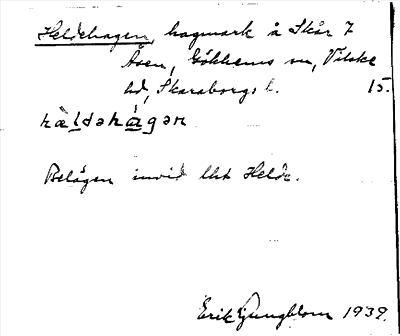 Heldehagen, hagmark å Skår 7
Åsen, Gökhems sn, Vilske
hd, Skaraborgs l. 15.
hældəhågən
Belägen invid lht Helde.
Erik Ljungblom 1939.